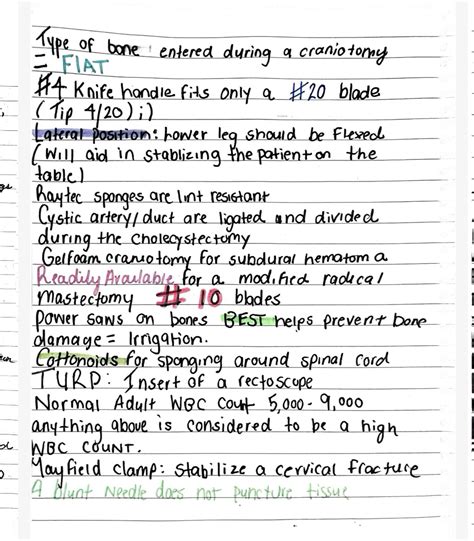 Type of bone entered during a craniotomy
= FLAT
#4 Knife handle fits only a #20 blade
(Tip 4/20);)
Lateral Position: Lower leg should be Flexed
(Will aid in stablizing the patient on the
table)
Raytec sponges are lint resistant
Cystic artery/duct are ligated and divided
during the Cholecystectomy
Gelfoam craniotomy for subdural hematoma
Readily Available for a modified radical
Mastectomy # 10 blades
Power saws on bones BEST helps prevent bone
damage = Irrigation.
Cottonoids for sponging around spinal cord
TURP: Insert of a rectoscope
Normal Adult WBC Count 5,000 - 9,000
anything above is considered to be a high
WBC COUNT.
Mayfield Clamp: Stabilize a cervical fracture
A blunt Needle does not puncture tissue